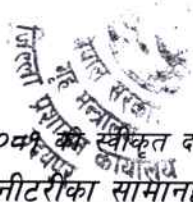 नेपाल सरकार
गृह मन्त्रालय
जिल्ला प्रशासन कार्यालय
की स्वीकृत द
नीटरीका सामान